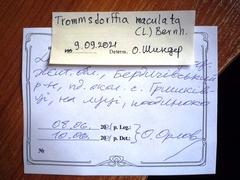 Trommsdorffia maculata
(L.) Bernh.
9.09.2021 Determ. О. Шиндер
Жит. обл., Бердичівський
р-н, пд. окол. с.
на луці, поодиноко
08.06. 20 р. Leg.:
10.06. 20 р. Det.: О. Орлов
№